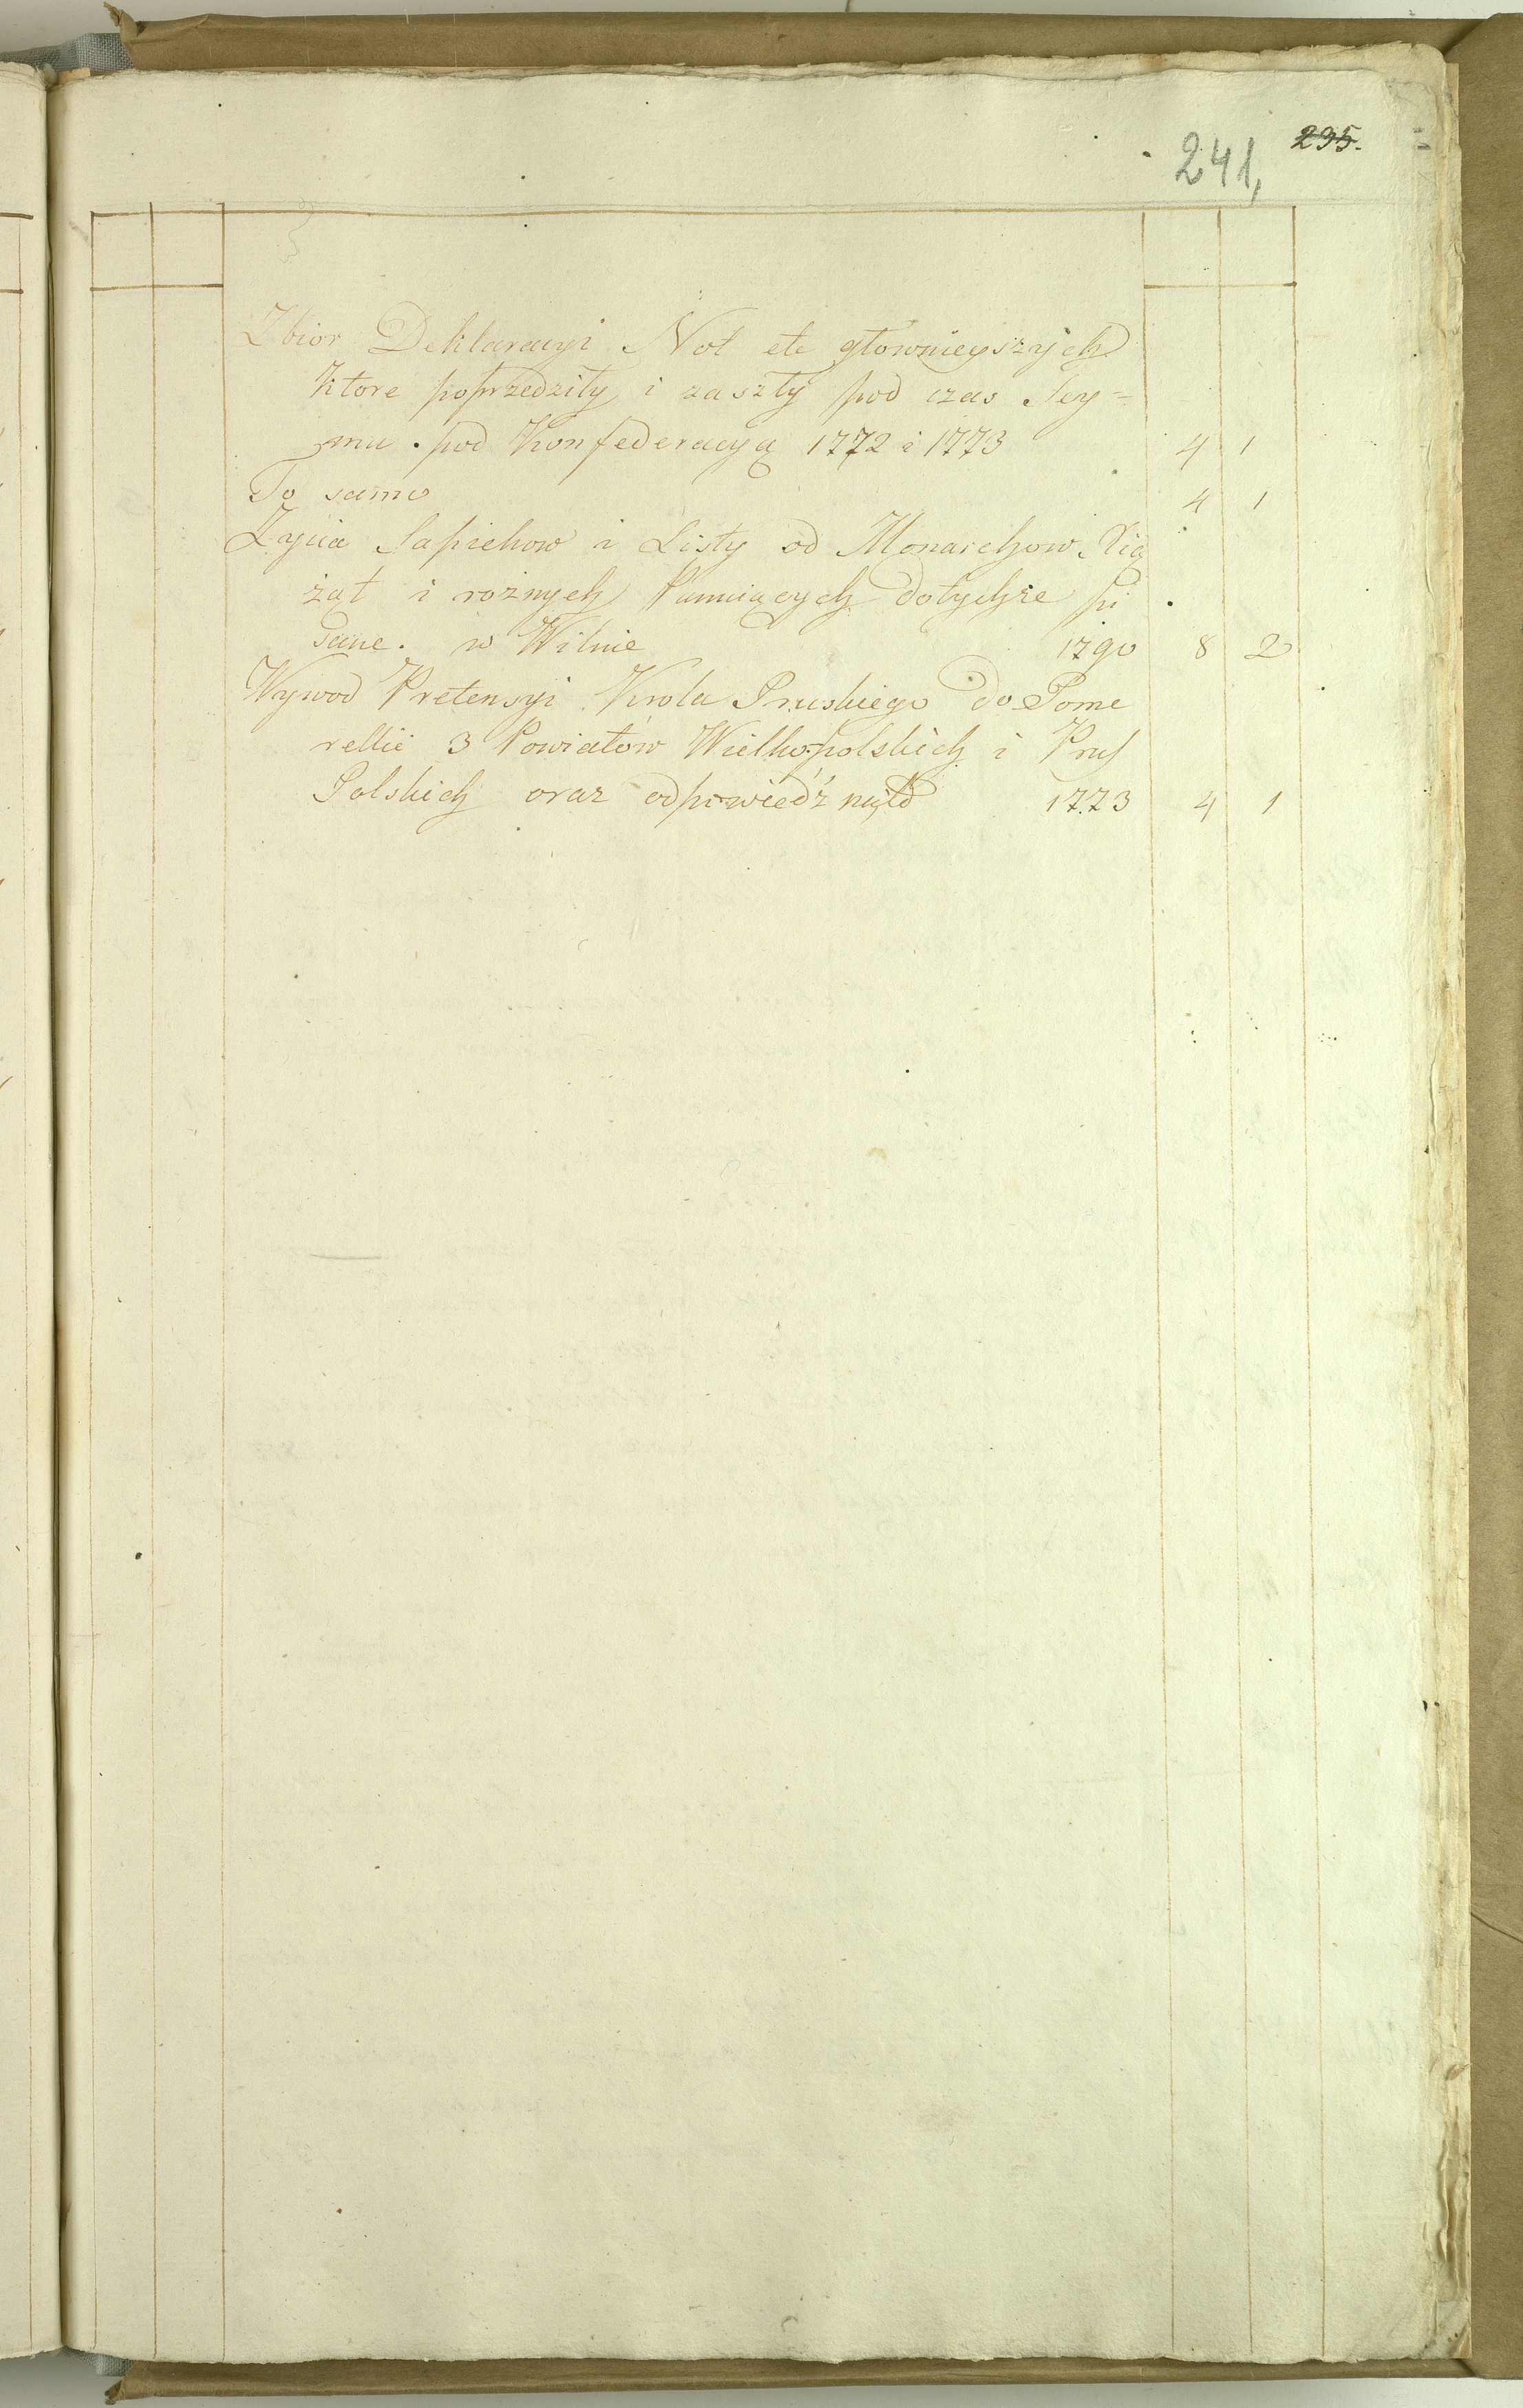 241, 235.
Zbior Deklaracyi Not etc głownieyszych
ktore poprzedziły i zaszły pod czas Sey=
mu . pod Konfederacyą 1772 i 1773 4 1
To samo 4 1
Zycia Sapiehow i Listy od Monarchow, Xią
żąt i rożnych Panuiących dotychże pi
sane. w Wilnie 1790 8 2
Wywod Pretensyi Krola Pruskiego do Pome
rellii 3 Powiatów Wielkopolskich i Prus
Polskich oraz odpowiedź na to 1773 4 1